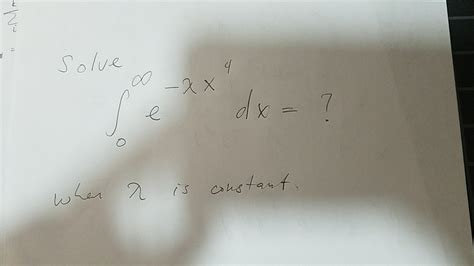 Solve
∫₀^∞ e^(-λx⁴) dx = ?
when λ is constant.